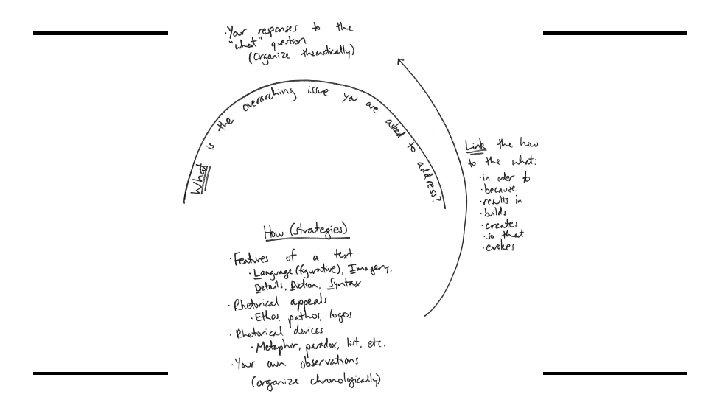 ·Your responses to the
"what" question
(organize thematically)
What is the overarching issue you are asked to address?
Link the how
to the what:
·in order to
·because
·results in
·builds
·creates
·so that
·evokes
How (strategies)
·Features of a text
·Language (figurative), Imagery,
Details, Diction, Syntax
·Rhetorical appeals
·Ethos, pathos, logos
·Rhetorical devices
·Metaphor, paradox, list, etc.
·Your own observations
(organize chronologically)